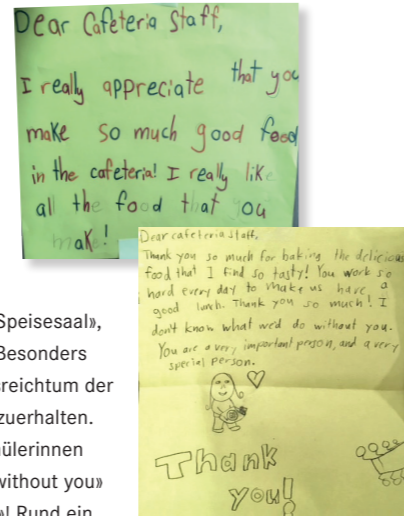 Dear Cafeteria Staff,
I really appreciate that you
make so much good food
in the cafeteria! I really like
all the food that you
make!
Dear cafeteria staff,
Thank you so much for baking the delicious
food that I find so tasty! You work so
hard every day to make us have a
good lunch. Thank you so much! I
don't know what we'd do without you.
You are a very important person, and a very
special person.
Thank
you!
Speisesaal»,
Besonders
reichtum der
zuerhalten.
ülerinnen
without you»
»! Rund ein